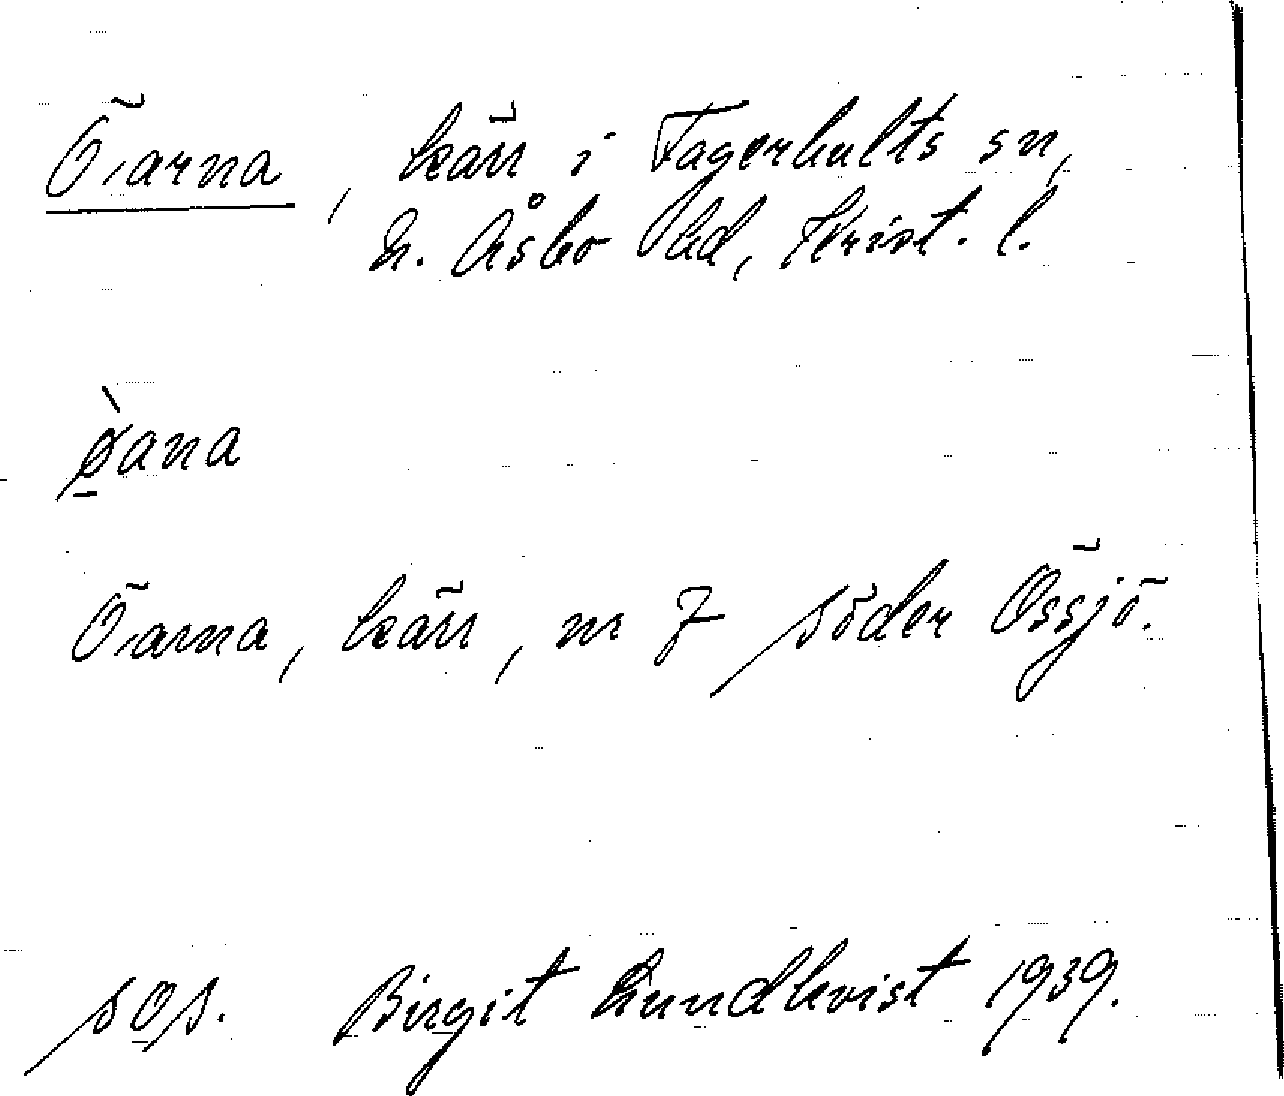 Öarna, kärr i Fagerhults sn,
N. Åsbo hd, Krist. l.
ø̀ana
Öarna, kärr, nr 7 söder Össjö.
sos. Birgit Lundkvist 1939.